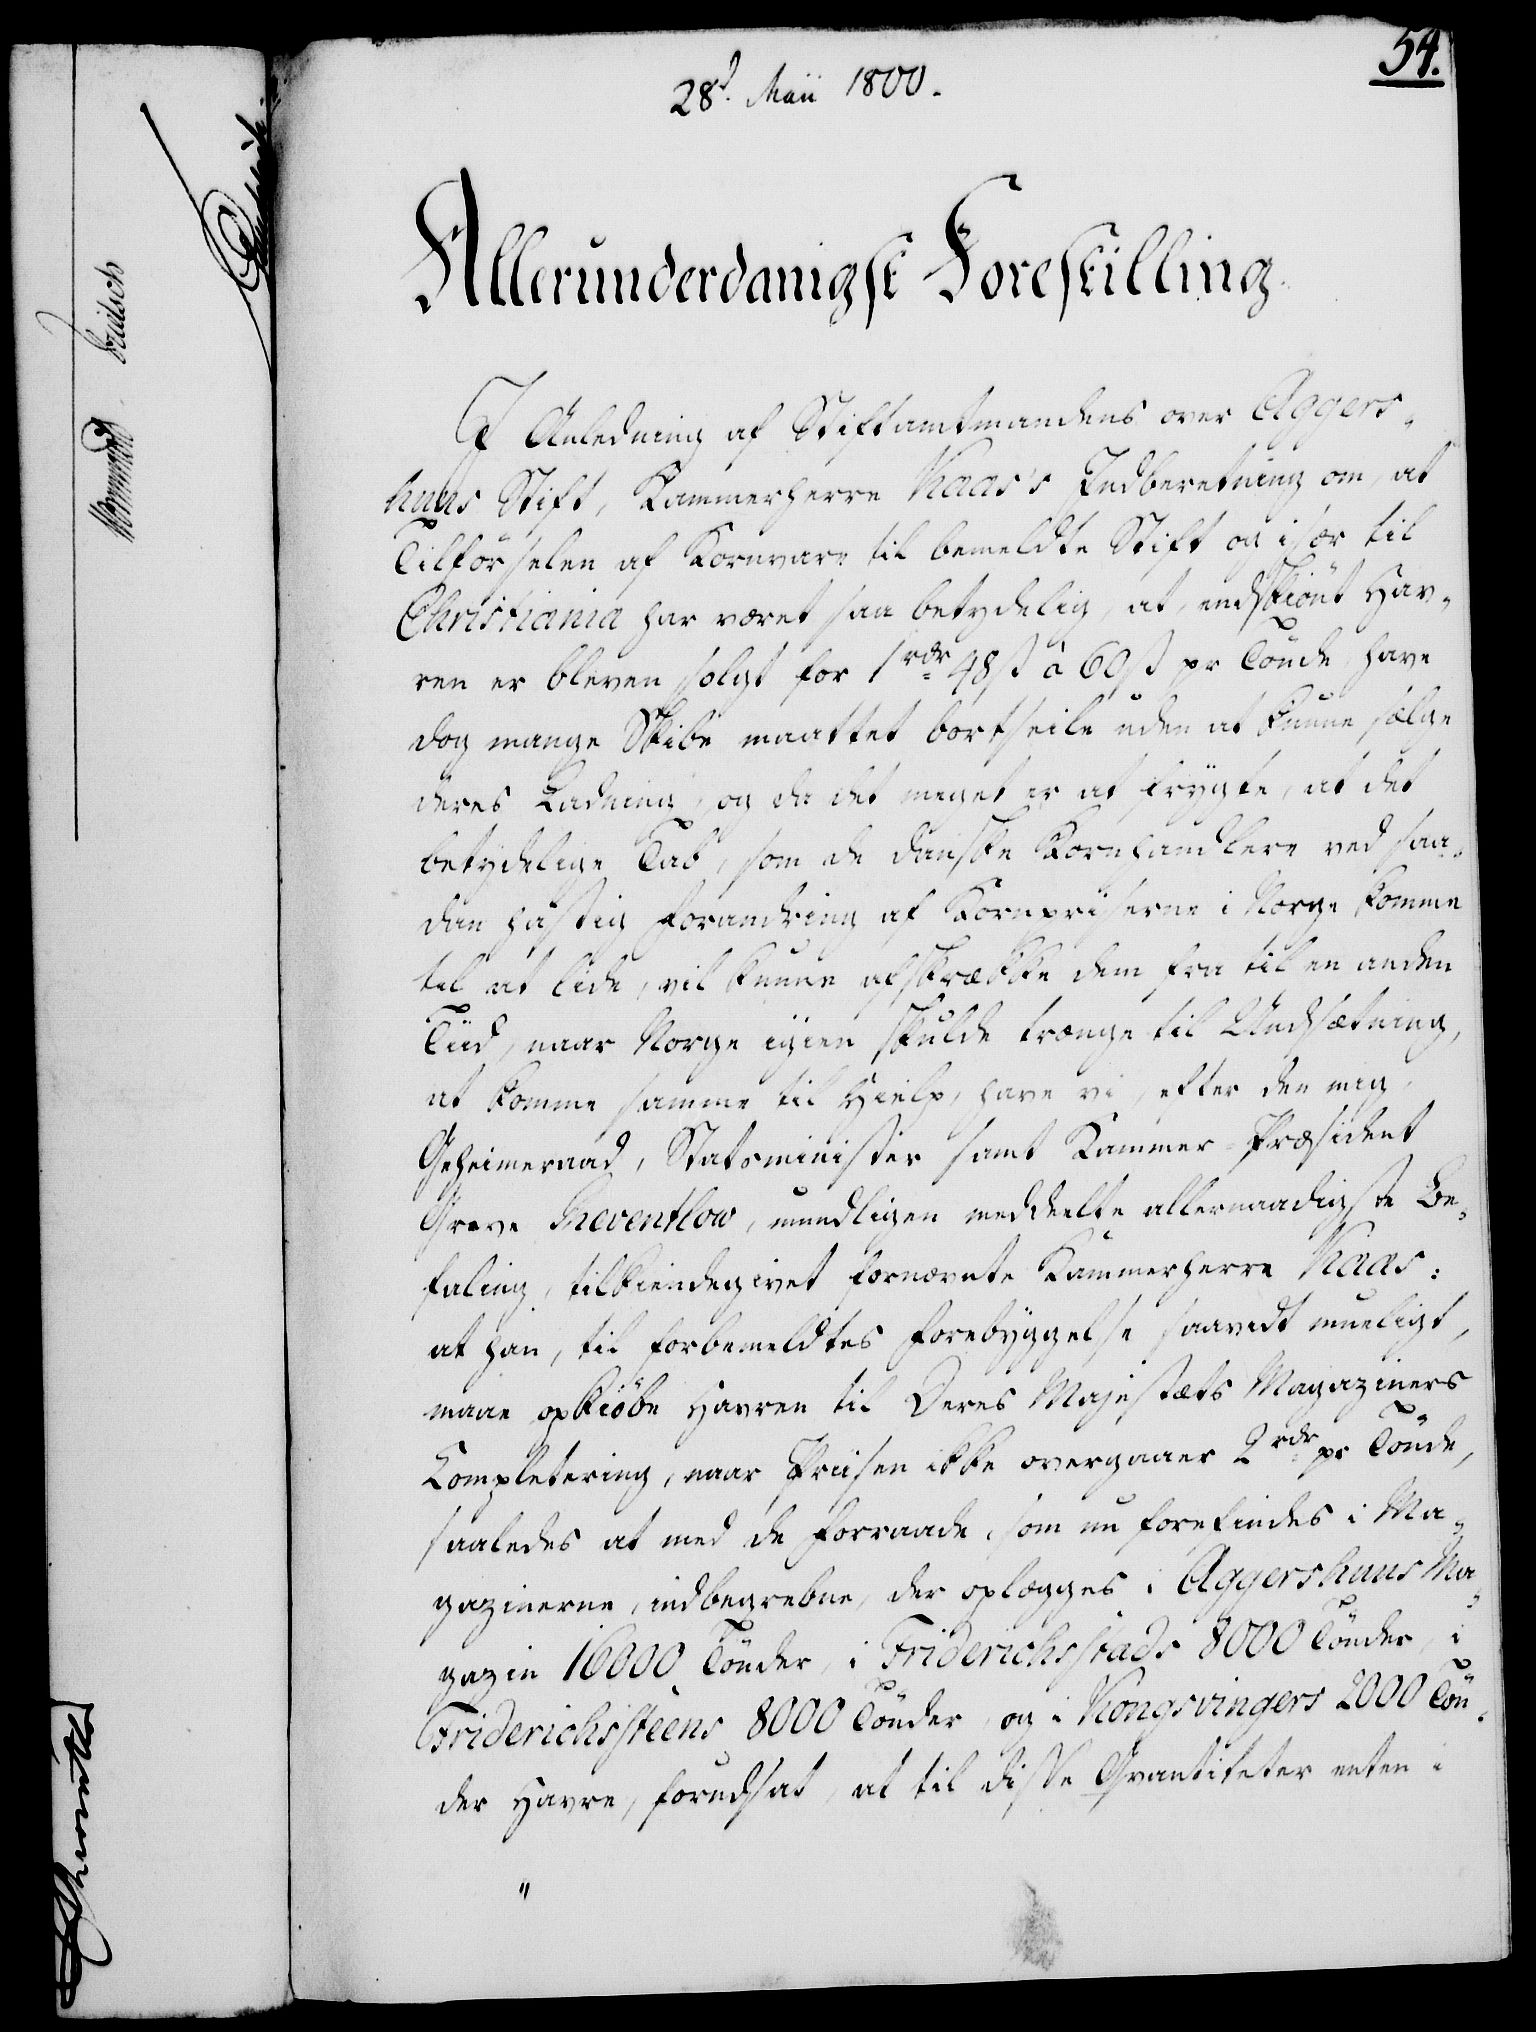 54.
28d. Maii 1800.
Allerunderdanigst Forestilling.
I Anledning af Stiftamtmandens over Aggers-
huus Stift, Kammerherre Kaas's Indberetning om, at
Tilførselen af Kornvare til bemeldte Stift og især til
Christiania har været saa betydelig, at, endskiønt Hav-
ren er bleven solgt for 1 rdr 48 ß à 60 ß pr Tönde, have
dog mange Skibe maattet bortseile uden at kunne sælge
deres Ladning, og da det meget er at frygte, at det
betydelige Tab, som de danske Kornhandlere ved saa-
dan hastig Forandring af Kornpriserne i Norge komme
til at lide, vil kunne afskrække dem fra til en anden
Tiid, naar Norge igien skulde trænge til Undsætning,
at komme samme til Hielp, have vi, efter den mig,
Geheimeraad, Statsminister samt Kammer-Præsident
Greve Reventlow, mundligen meddeelte allernaadigste Be-
faling, tilkiendegivet fornævnte Kammerherre Kaas:
at han, til forbemeldtes Forebyggelse saavidt mueligt,
maae opkiöbe Havren til Deres Majestæts Magaziners
Completering, naar Priisen ikke overgaaer 2 rdr pr Tönde,
saaledes at med de Forraade, som nu forefindes i Ma-
gazinerne, indbegrebne, der oplægges i Aggershuus Ma-
gazin 16000 Tönder, i Friderichsstads 8000 Tönder, i
Friderichssteens 8000 Tönder, og i Kongsvingers 2000 Tön-
der Havre, forudsat, at til disse Qvantiteter enten i
"